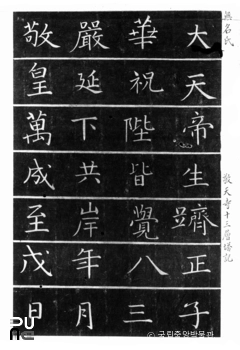 大華嚴敬
天祝延皇
帝陛下萬
生皆共成
躋覺岸至
正八年戊
子三月日
無名氏
敬天寺十三層塔記
© 국립중앙박물관